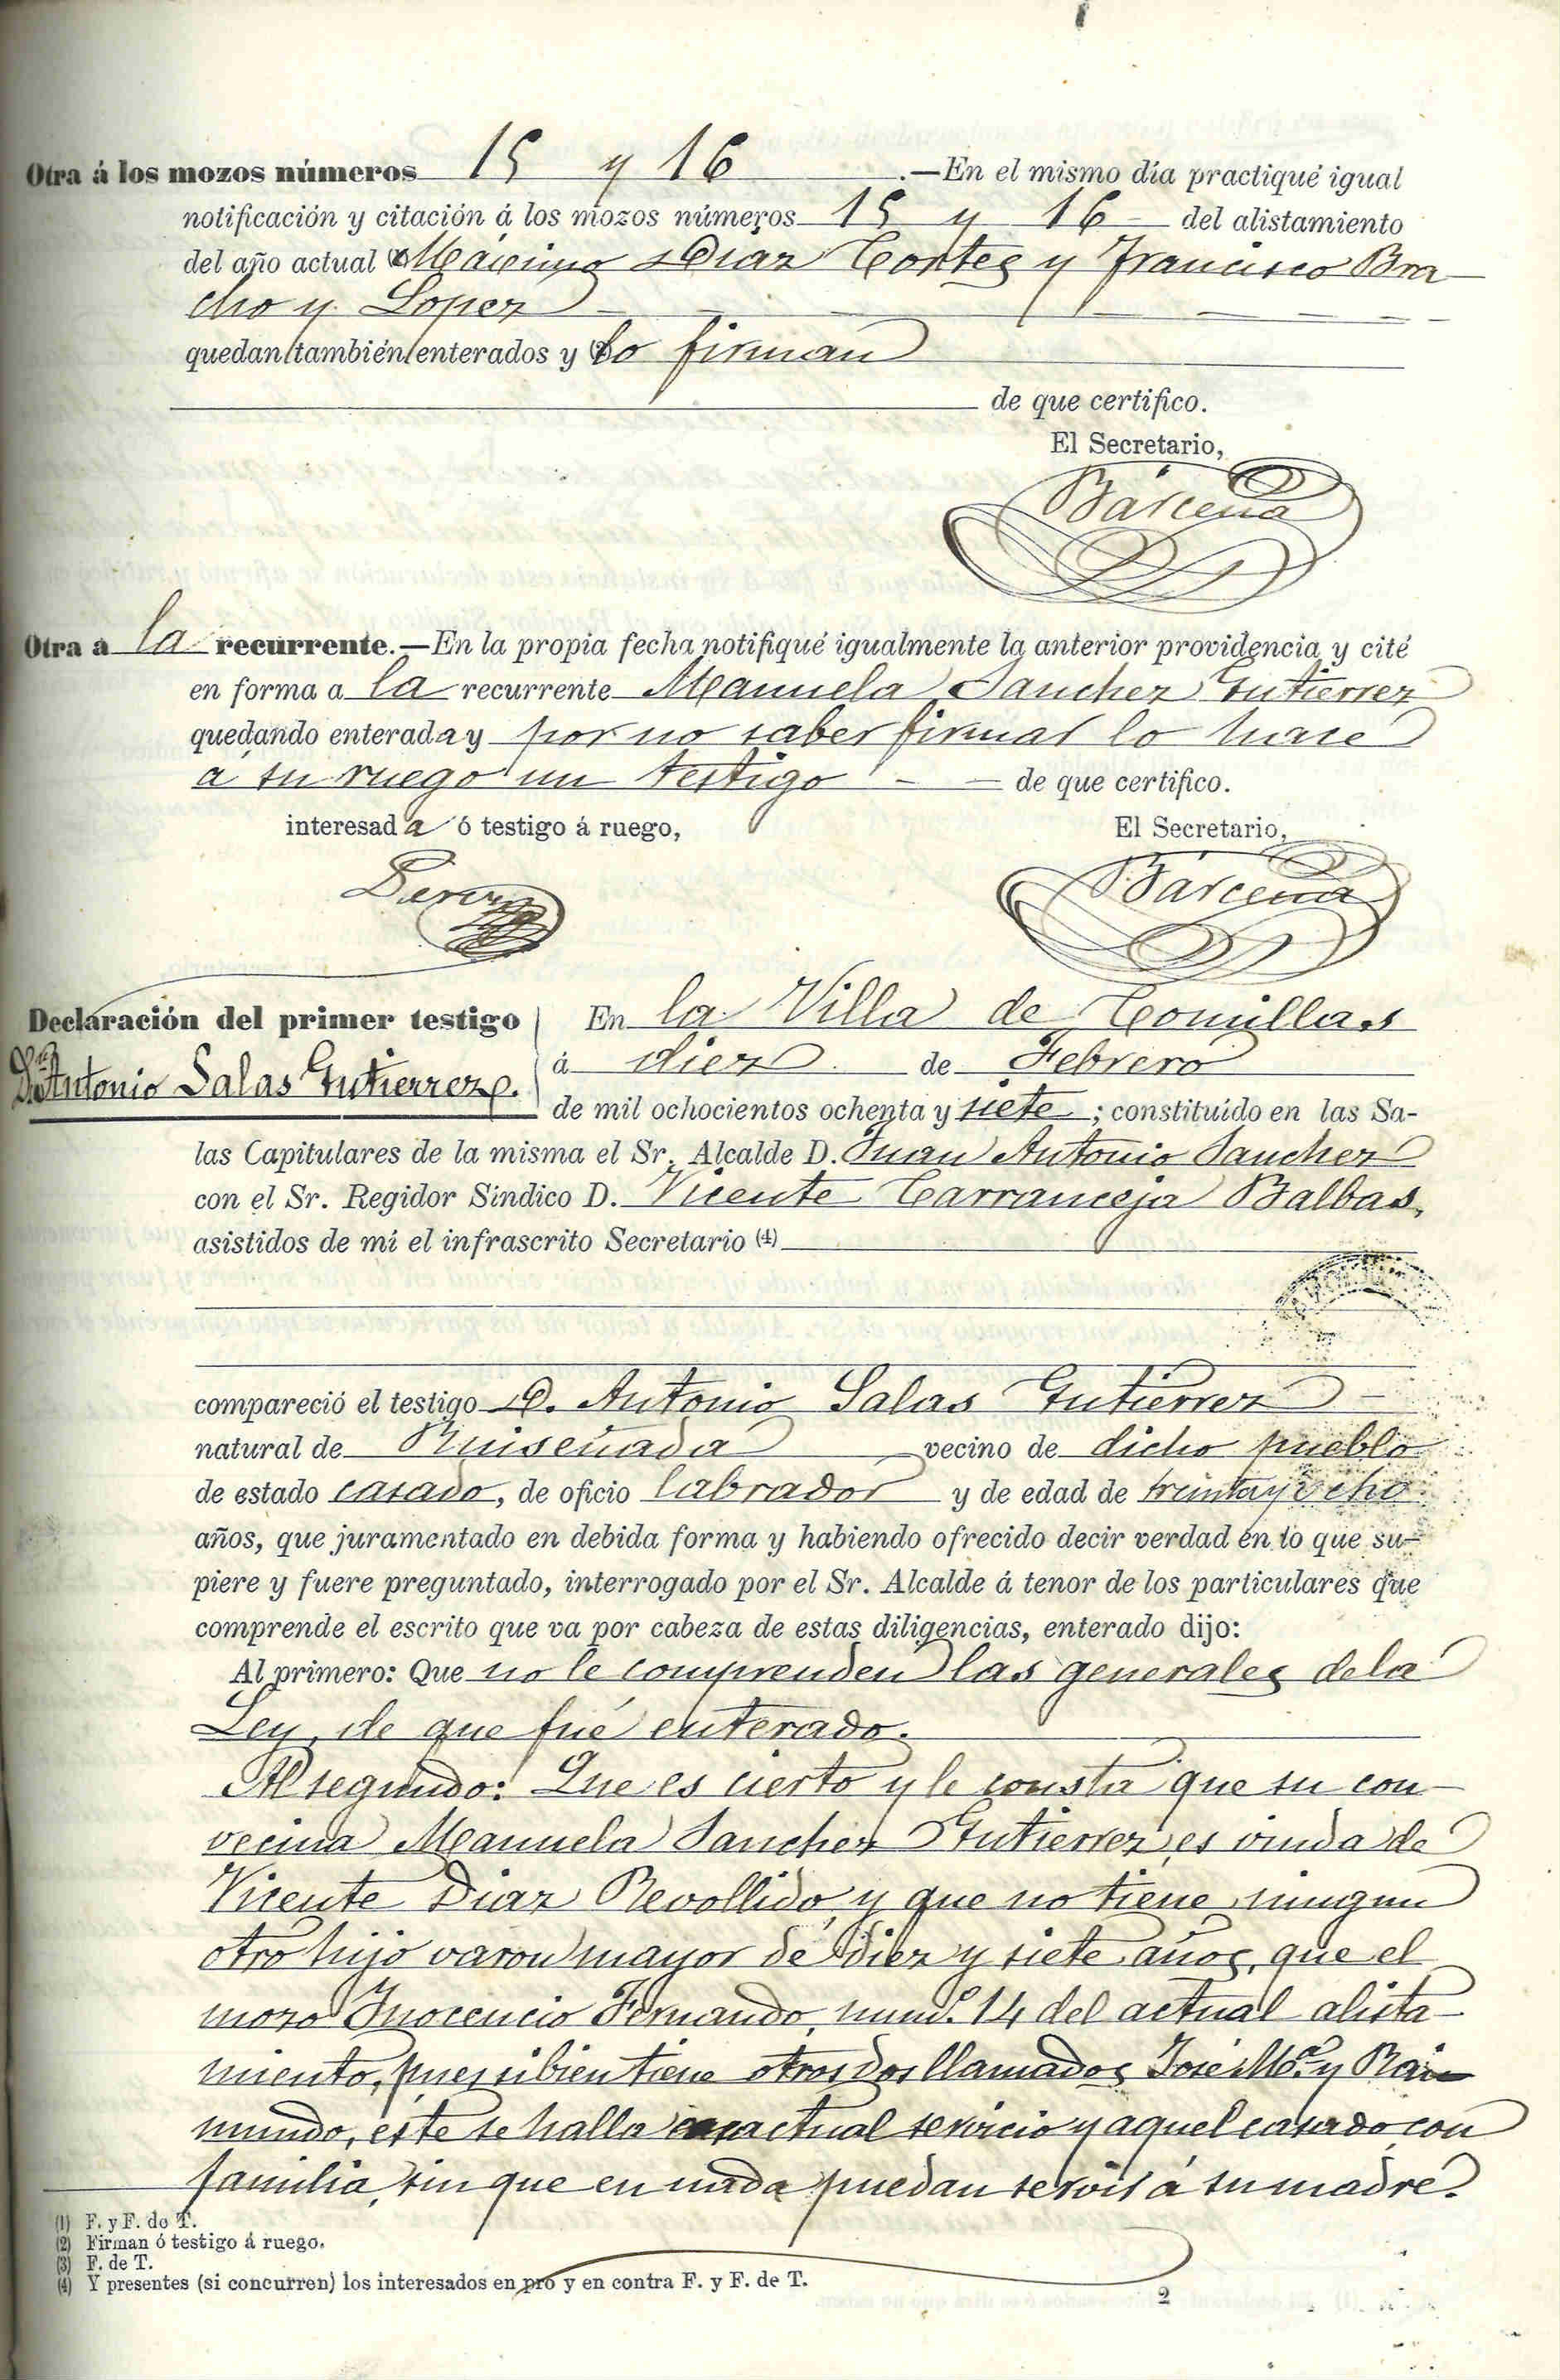 Otra á los mozos números 15 y 16 .—En el mismo día practiqué igual
notificación y citación á los mozos números 15 y 16 del alistamiento
del año actual (1) Máximo Diaz Cortes y Francisco Bra-
cho y Lopez
quedan también enterados y (2) lo firman
de que certifico.
El Secretario,
Bárcena
Otra a la recurrente.—En la propia fecha notifiqué igualmente la anterior providencia y cité
en forma a la recurrente Manuela Sanchez Gutierrez
quedando enterada y por no saber firmar lo hace
á su ruego un testigo de que certifico.
interesada ó testigo á ruego, El Secretario,
Perez Bárcena
Declaración del primer testigo En la Villa de Comillas
D. Antonio Salas Gutierrez. á diez de Febrero
de mil ochocientos ochenta y siete ; constituído en las Sa-
las Capitulares de la misma el Sr. Alcalde D. Juan Antonio Sanchez
con el Sr. Regidor Síndico D. Vicente Carranceja Balbas,
asistidos de mí el infrascrito Secretario (4)
compareció el testigo D. Antonio Salas Gutierrez
natural de Ruiseñada vecino de dicho pueblo
de estado casado, de oficio labrador y de edad de treinta y ocho
años, que juramentado en debida forma y habiendo ofrecido decir verdad en lo que su-
piere y fuere preguntado, interrogado por el Sr. Alcalde á tenor de los particulares que
comprende el escrito que va por cabeza de estas diligencias, enterado dijo:
Al primero: Que no le comprenden las generales de la
Ley, de que fué enterado.
Al segundo: Que es cierto y le consta que su con-
vecina Manuela Sanchez Gutierrez, es viuda de
Vicente Diaz Revollido, y que no tiene ningun
otro hijo varon mayor de diez y siete años, que el
mozo Inocencio Fernando, num.º 14 del actual alista-
miento, pues si bien tiene otros dos llamados José M.ª y Rai-
mundo, éste se halla en actual servicio y aquel casado con
familia, sin que en nada puedan servir á su madre.
(1) F. y F. de T.
(2) Firman ó testigo á ruego.
(3) F. de T.
(4) Y presentes (si concurren) los interesados en pró y en contra F. y F. de T.
2